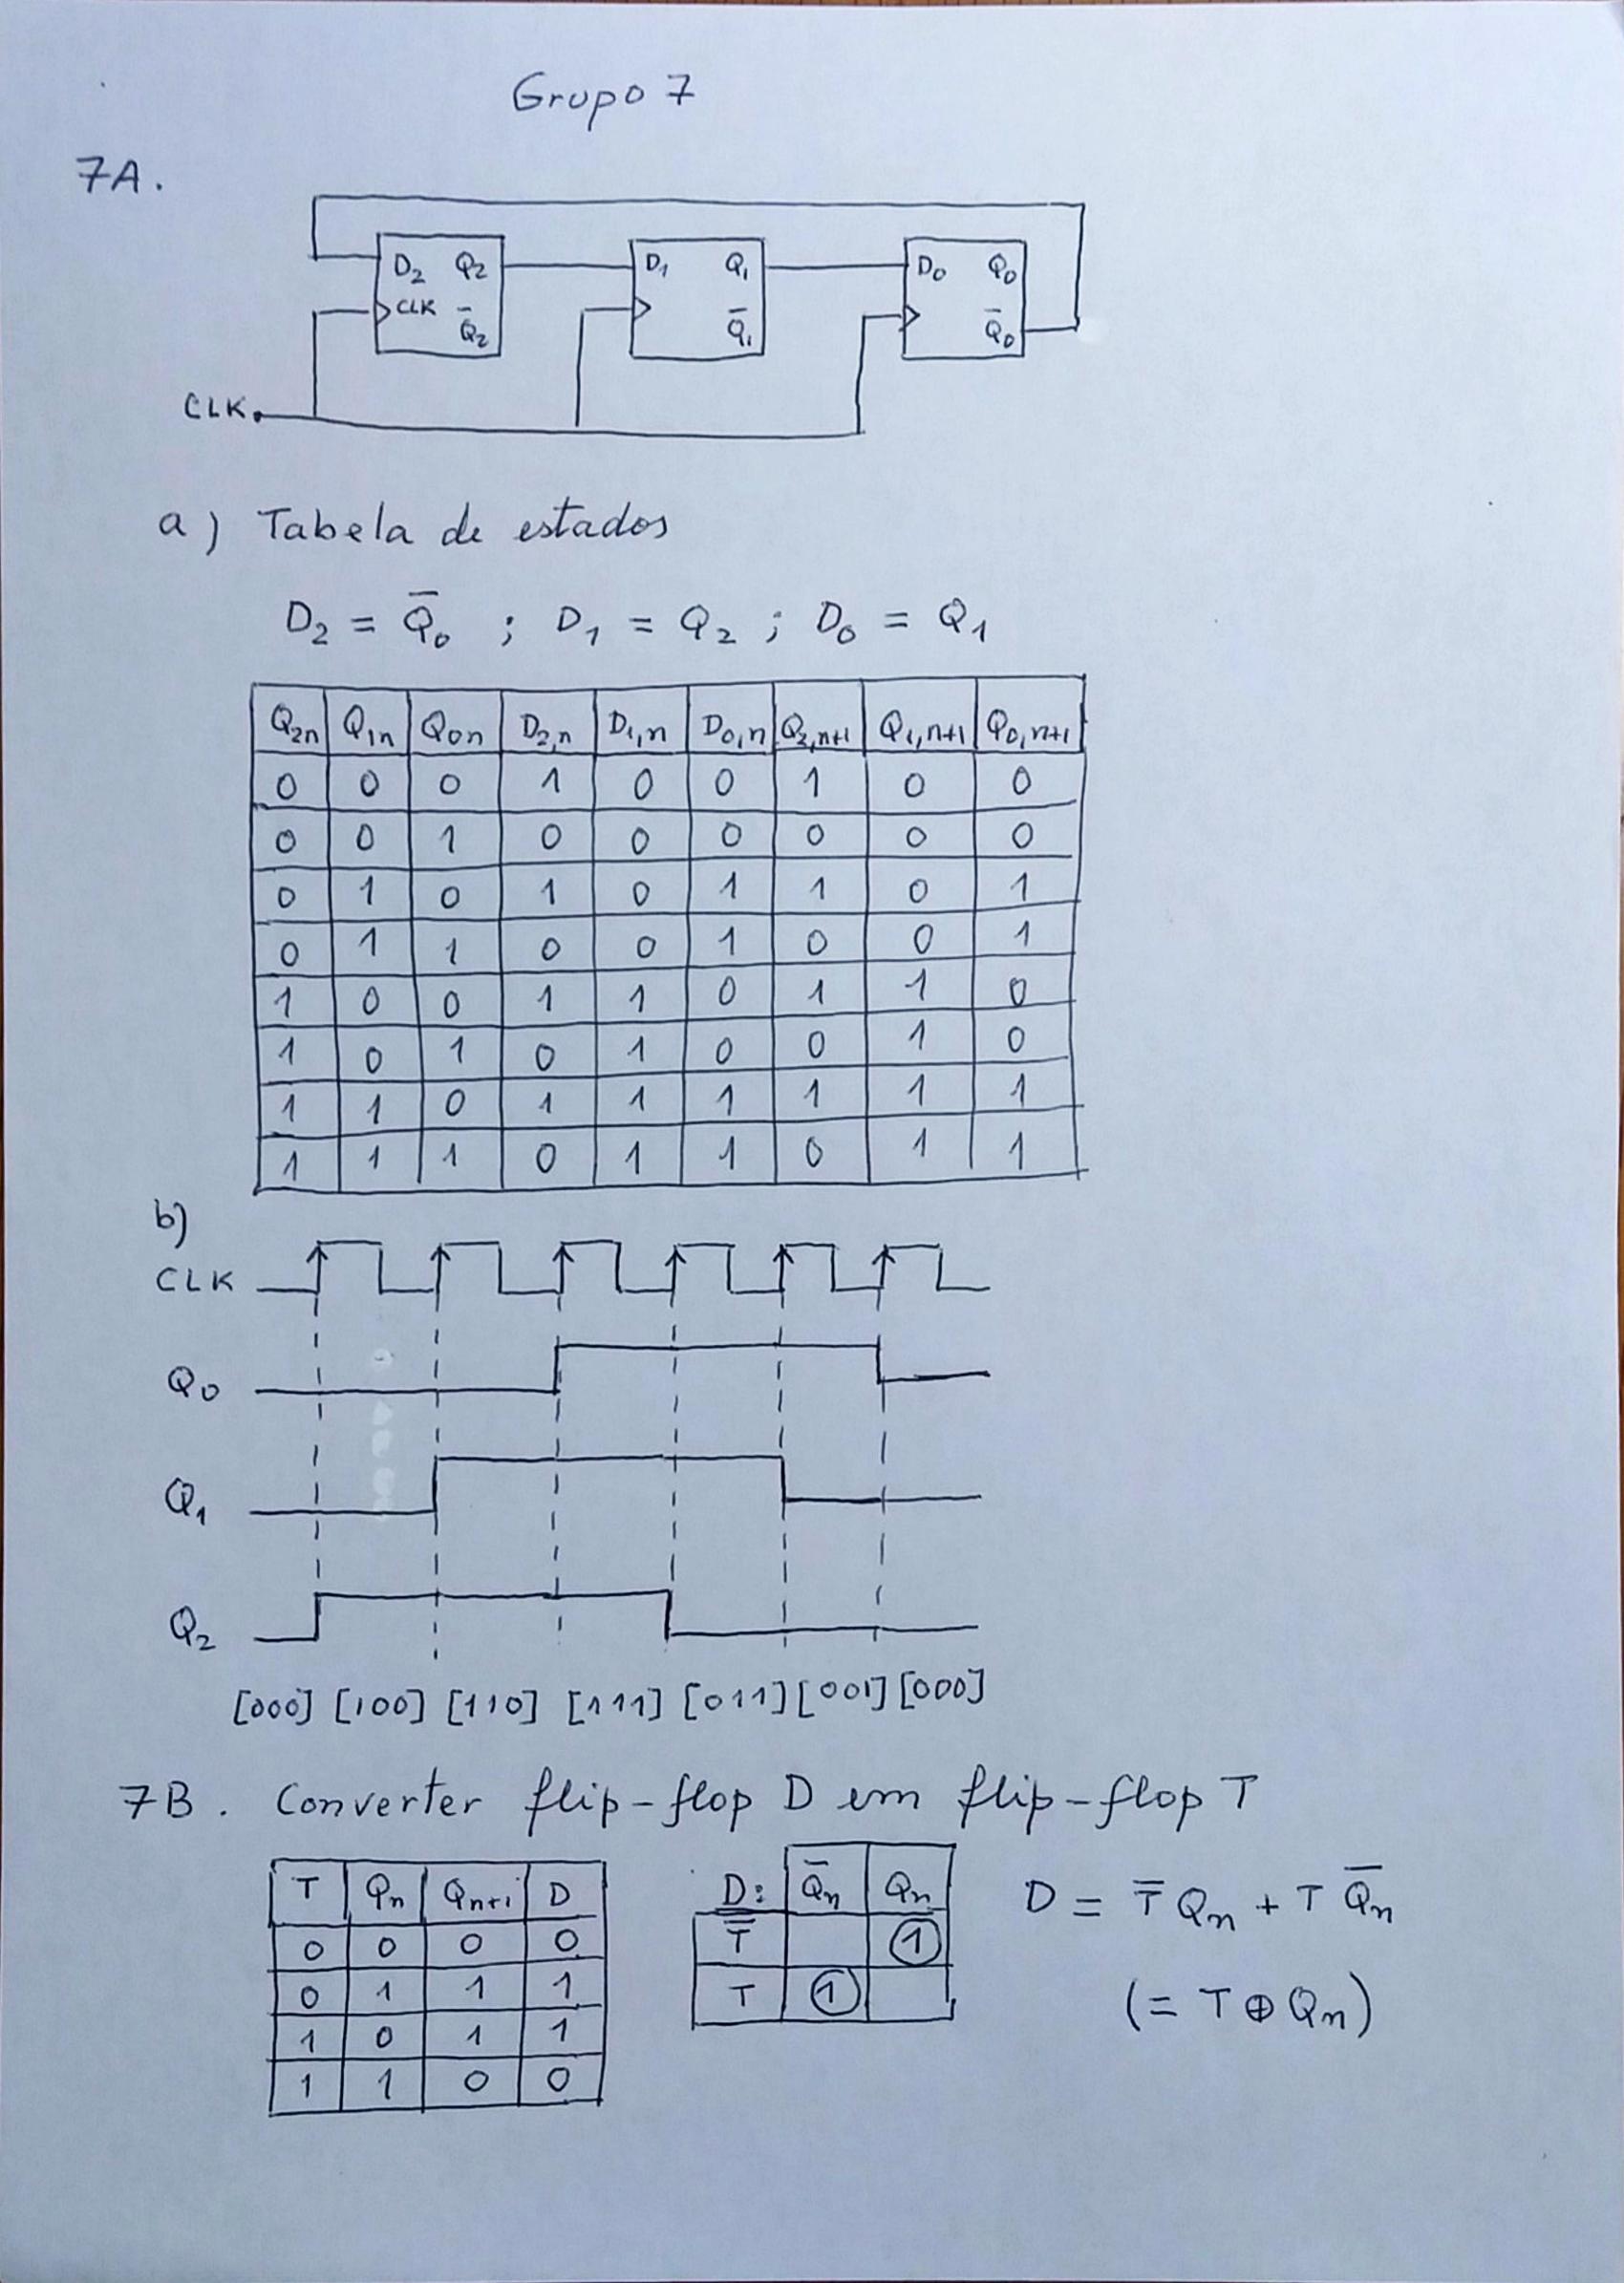 Grupo 7
7A.
D₂ Q₂ D₁ Q₁ D₀ Q₀
CLK Q̅₂ Q̅₁ Q̅₀
CLK
a) Tabela de estados
D₂ = Q̅₀ ; D₁ = Q₂ ; D₀ = Q₁
Q2n Q1n Q0n D2,n D1,n D0,n Q2,n+1 Q1,n+1 Q0,n+1
0 0 0 1 0 0 1 0 0
0 0 1 0 0 0 0 0 0
0 1 0 1 0 1 1 0 1
0 1 1 0 0 1 0 0 1
1 0 0 1 1 0 1 1 0
1 0 1 0 1 0 0 1 0
1 1 0 1 1 1 1 1 1
1 1 1 0 1 1 0 1 1
b)
CLK
Q₀
Q₁
Q₂
[000] [100] [110] [111] [011] [001] [000]
7B. Converter flip-flop D em flip-flop T
T Qn Qn+1 D
0 0 0 0
0 1 1 1
1 0 1 1
1 1 0 0
D: Q̅n Qn
T̅ 1
T 1
D = T̅ Qn + T Q̅n
(= T ⊕ Qn)